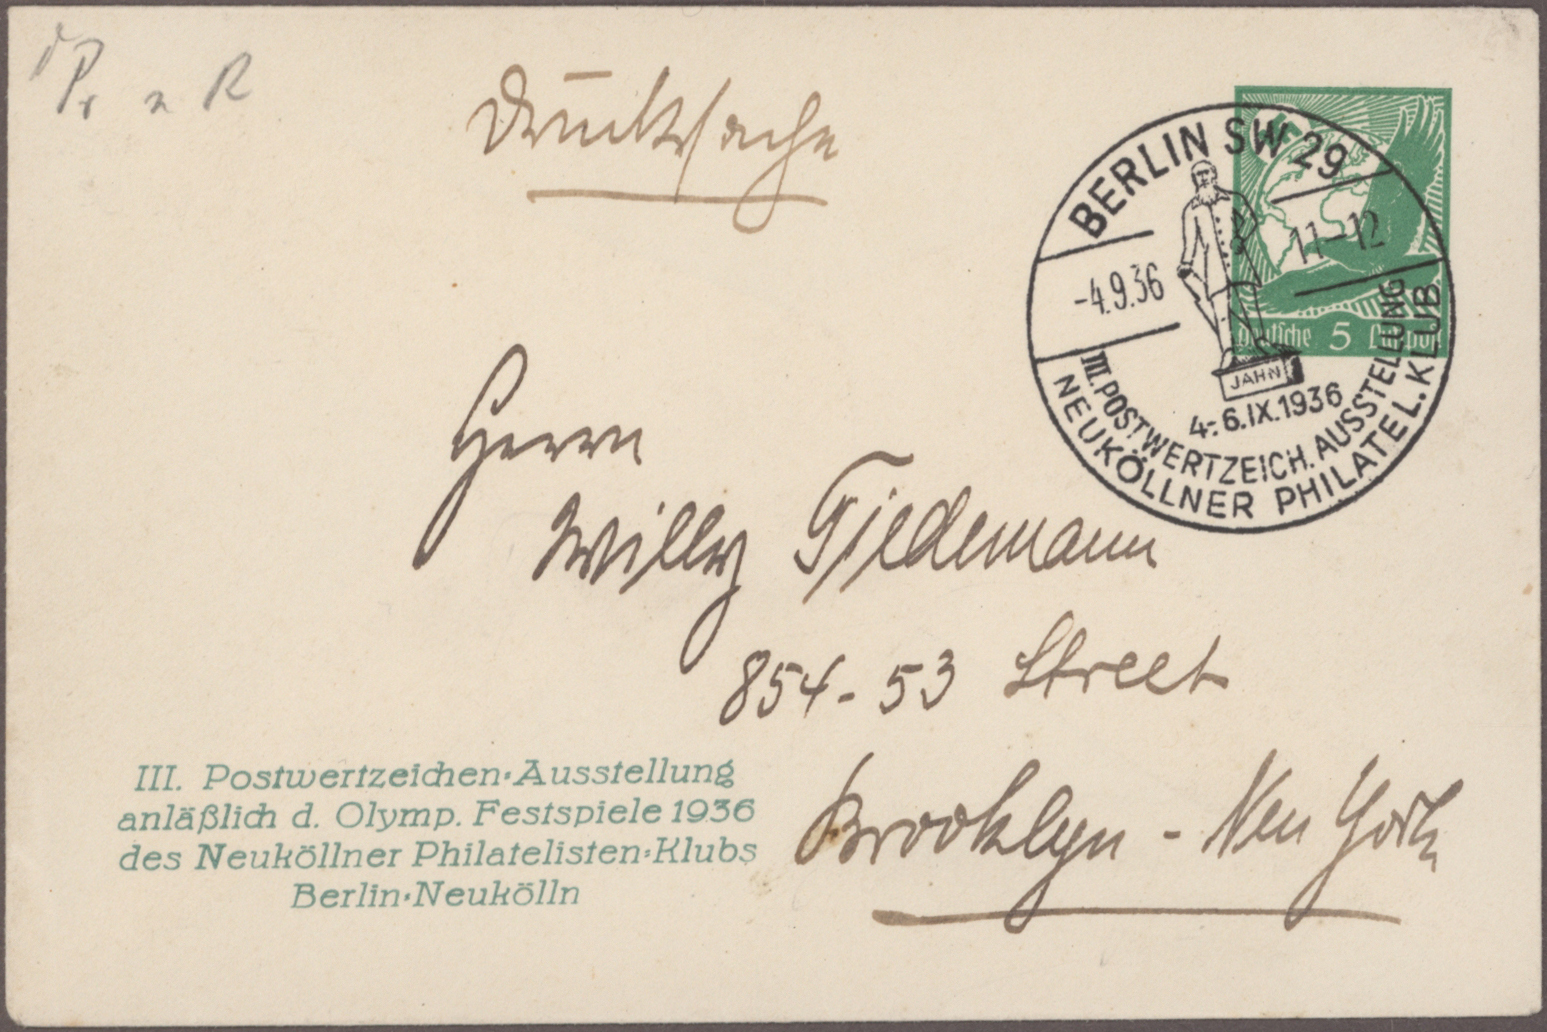 Drucksache
BERLIN SW 29
-4.9.36
11-12
JAHN
4.-6.IX.1936
III. POSTWERTZEICH. AUSSTELLUNG
NEUKÖLLNER PHILATEL. KLUB
Deutsche 5 Luftpost
Herrn
Willy Tiedemann
854 - 53 Street
Brooklyn - New York
III. Postwertzeichen-Ausstellung
anläßlich d. Olymp. Festspiele 1936
des Neuköllner Philatelisten-Klubs
Berlin-Neukölln